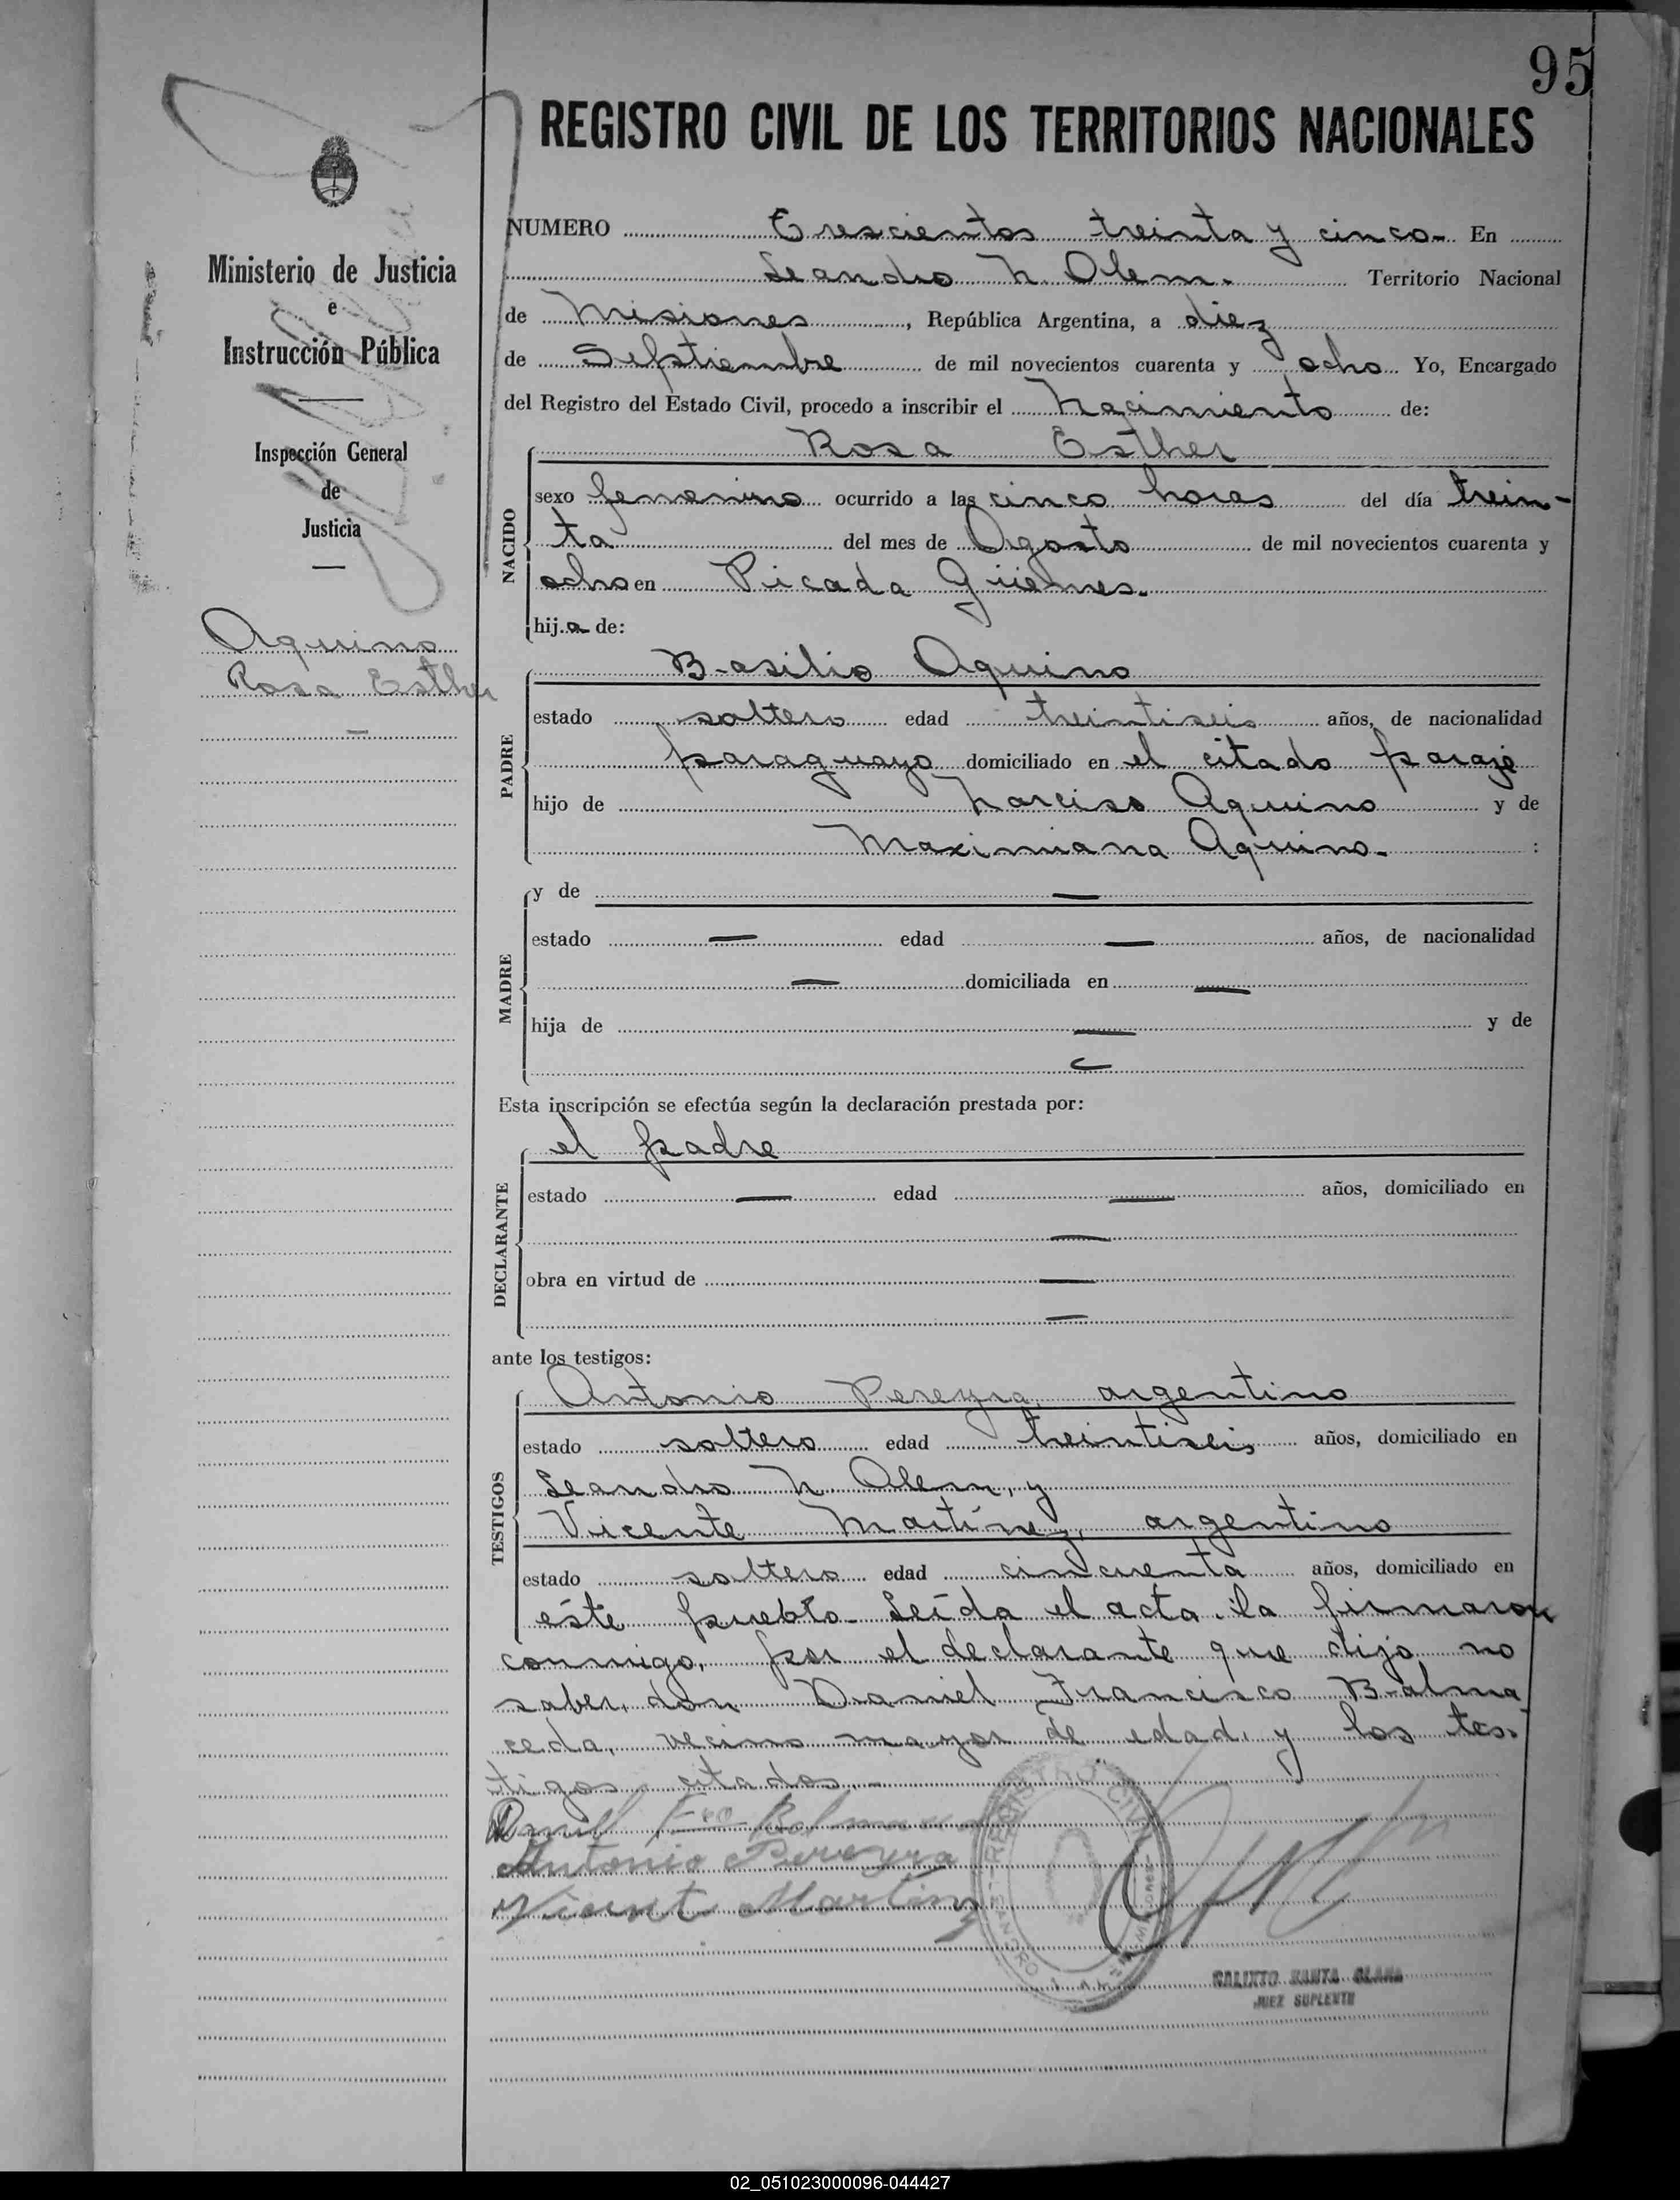 95
REGISTRO CIVIL DE LOS TERRITORIOS NACIONALES
Ministerio de Justicia
e
Instrucción Pública
Inspección General
de
Justicia
Aquino
Rosa Esther
NUMERO Trescientos treinta y cinco- En
Leandro N. Alem. Territorio Nacional
de Misiones, República Argentina, a diez
de Septiembre de mil novecientos cuarenta y ocho Yo, Encargado
del Registro del Estado Civil, procedo a inscribir el Nacimiento de:
NACIDO
Rosa Esther
sexo femenino ocurrido a las cinco horas del día trein-
ta del mes de Agosto de mil novecientos cuarenta y
ocho en Picada Güemes.
hij.a de:
PADRE
Basilio Aquino
estado soltero edad treintiseis años, de nacionalidad
paraguayo domiciliado en el citado paraje
hijo de Narciso Aquino y de
Maximiana Aquino- :
MADRE
y de —
estado — edad — años, de nacionalidad
— domiciliada en —
hija de — y de
—
Esta inscripción se efectúa según la declaración prestada por:
DECLARANTE
el padre
estado — edad — años, domiciliado en
—
obra en virtud de —
—
ante los testigos:
TESTIGOS
Antonio Pereyra, argentino
estado soltero edad treintiseis años, domiciliado en
Leandro N. Alem, y
Vicente Martínez, argentino
estado soltero edad cincuenta años, domiciliado en
éste pueblo- Leída el acta, la firmaron
conmigo, por el declarante que dijo no
saber, don Daniel Francisco Balma
ceda, vecino mayor de edad, y los tes-
tigos citados.-
Antonio Pereyra
Vicent Martinz
REGISTRO CIVIL
CALIXTO SANTA CLARA
JUEZ SUPLENTE
02_051023000096-044427